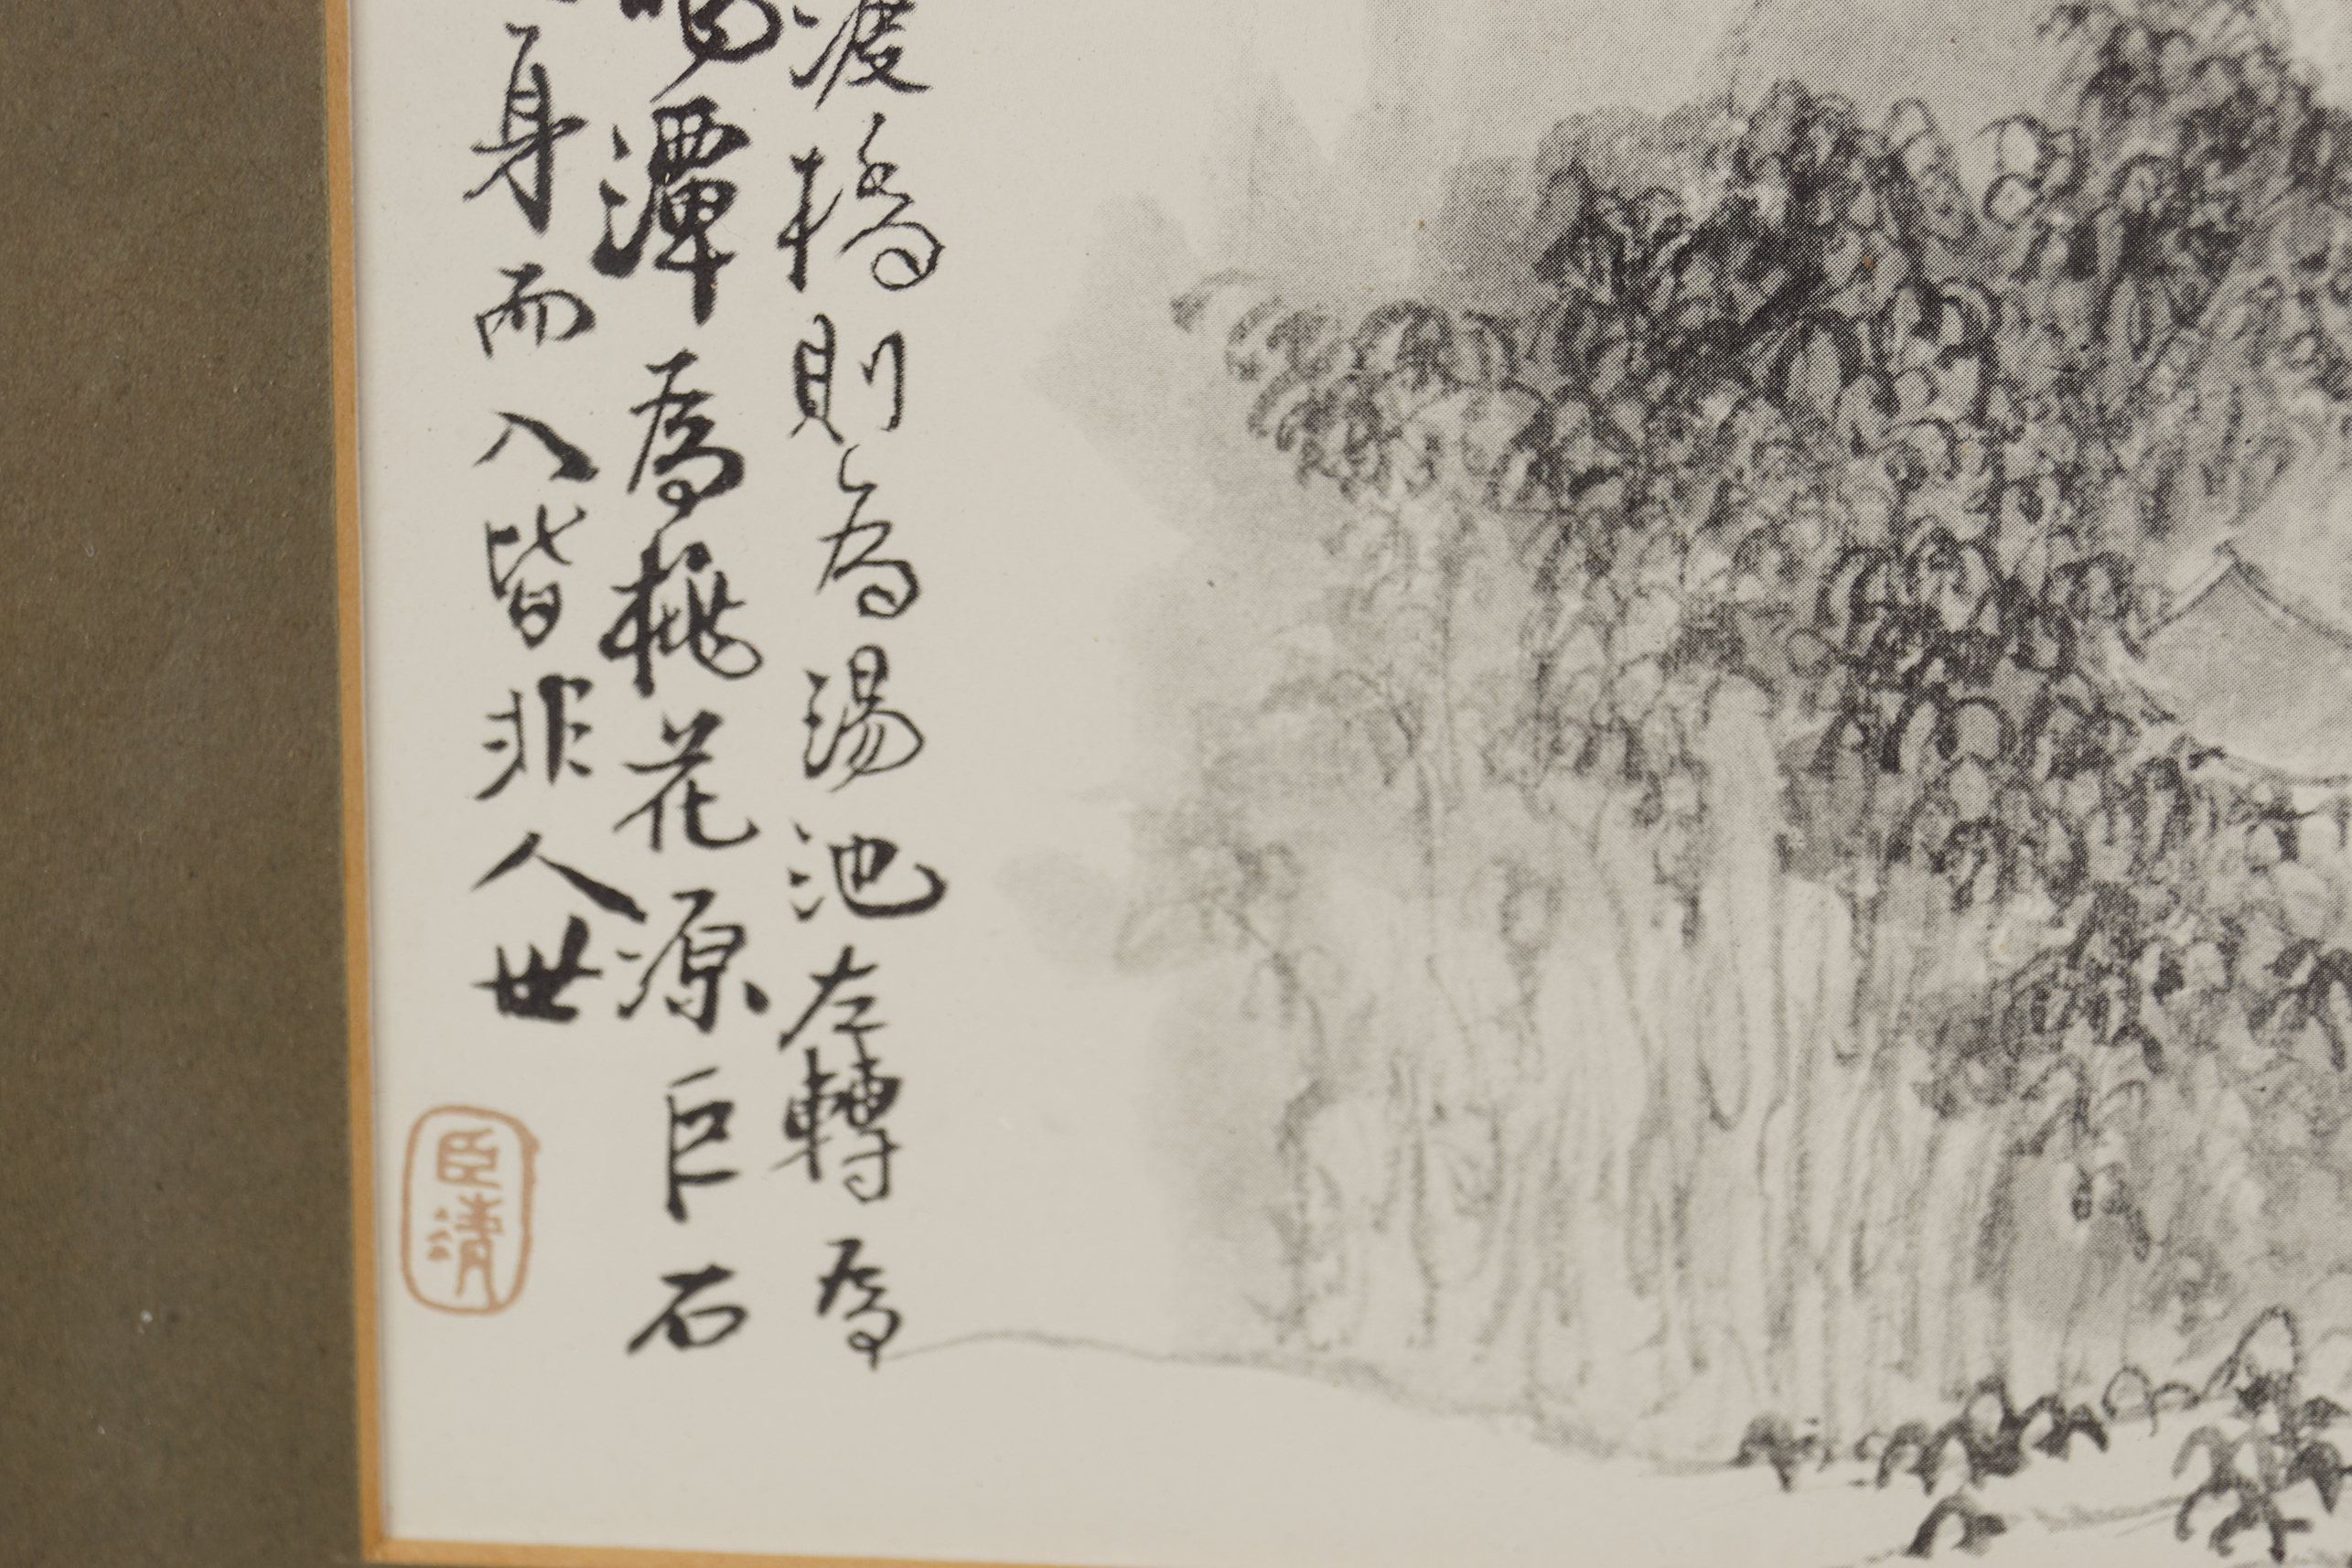 渡橋則為湯池左轉為
潭為桃花源巨石
身而入皆非人世
臣清